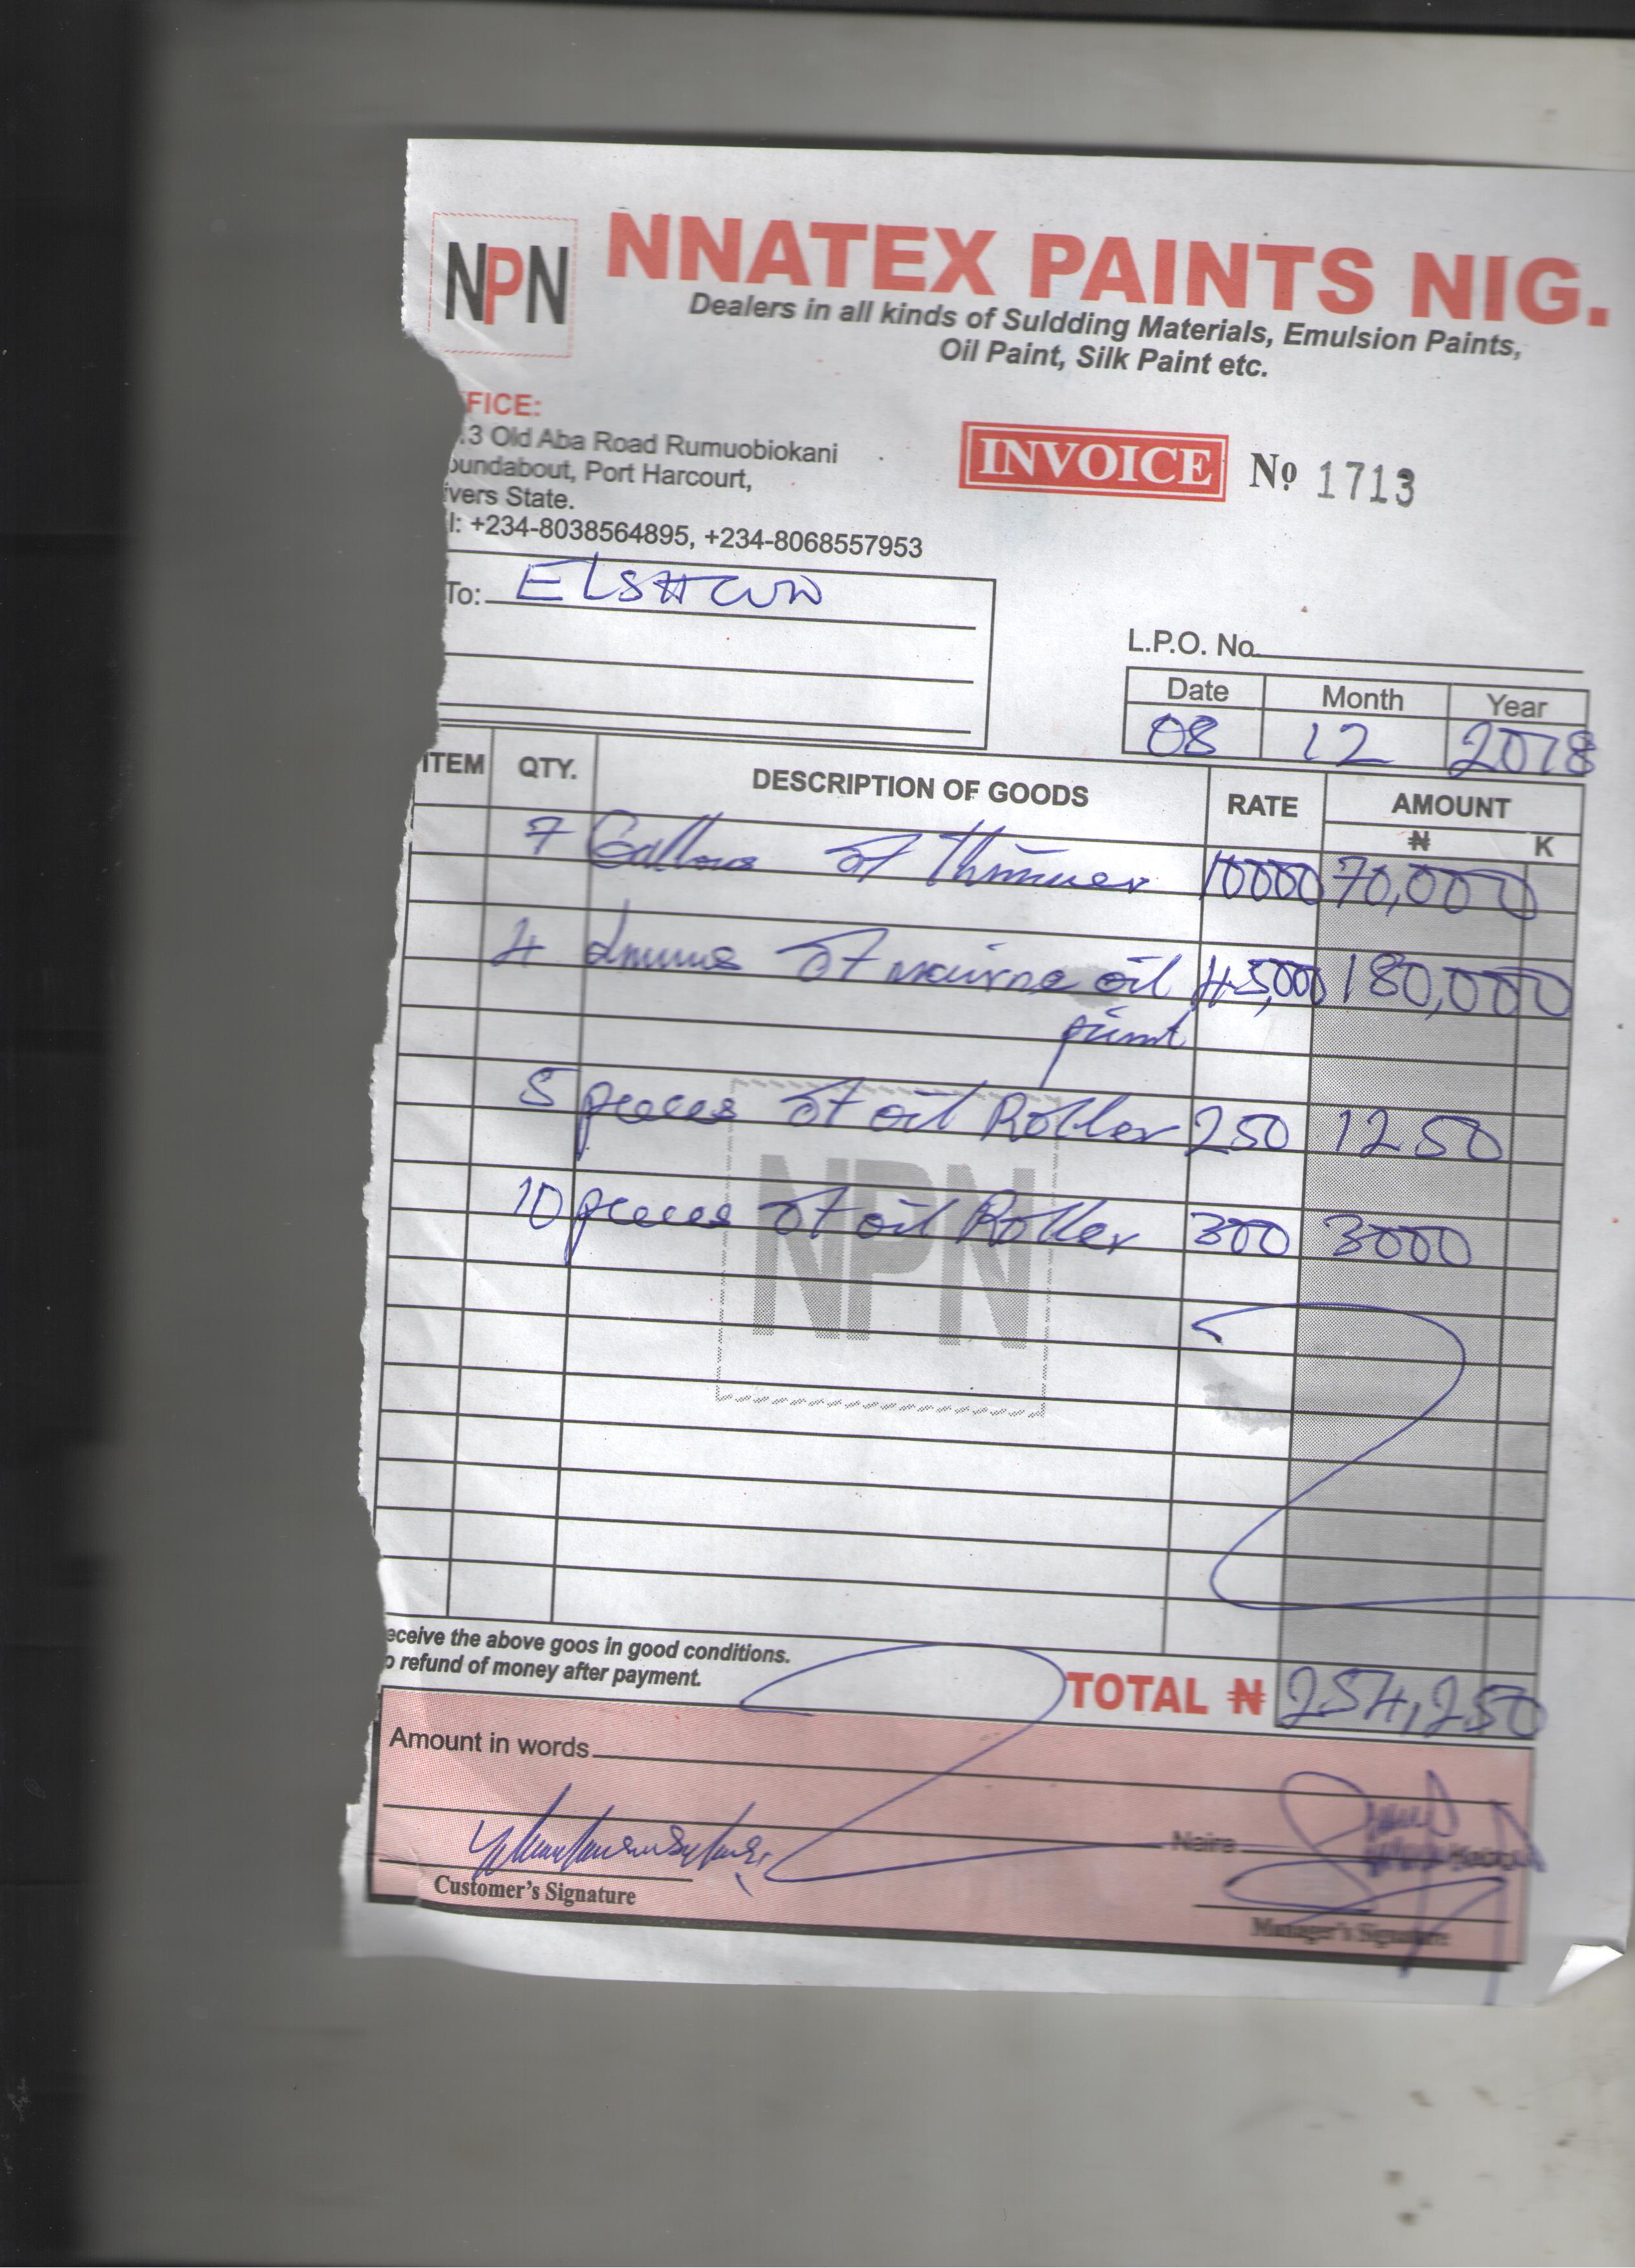 NPN
NNATEX PAINTS NIG.
Dealers in all kinds of Suldding Materials, Emulsion Paints,
Oil Paint, Silk Paint etc.
FICE:
3 Old Aba Road Rumuobiokani
oundabout, Port Harcourt,
ivers State.
l: +234-8038564895, +234-8068557953
INVOICE No 1713
To:
L.P.O. No.
Date Month Year
08 12 2018
ITEM QTY. DESCRIPTION OF GOODS RATE AMOUNT
₦ K
7 Gallons of thinner 10000 70,000
4 drums of marine oil 45,000 180,000
paint
5 pieces of oil Roller 250 1250
10 pieces of oil Roller 300 3000
NPN
eceive the above goos in good conditions.
o refund of money after payment.
TOTAL ₦ 254,250
Amount in words
Naira
Customer's Signature
Manager's Signature